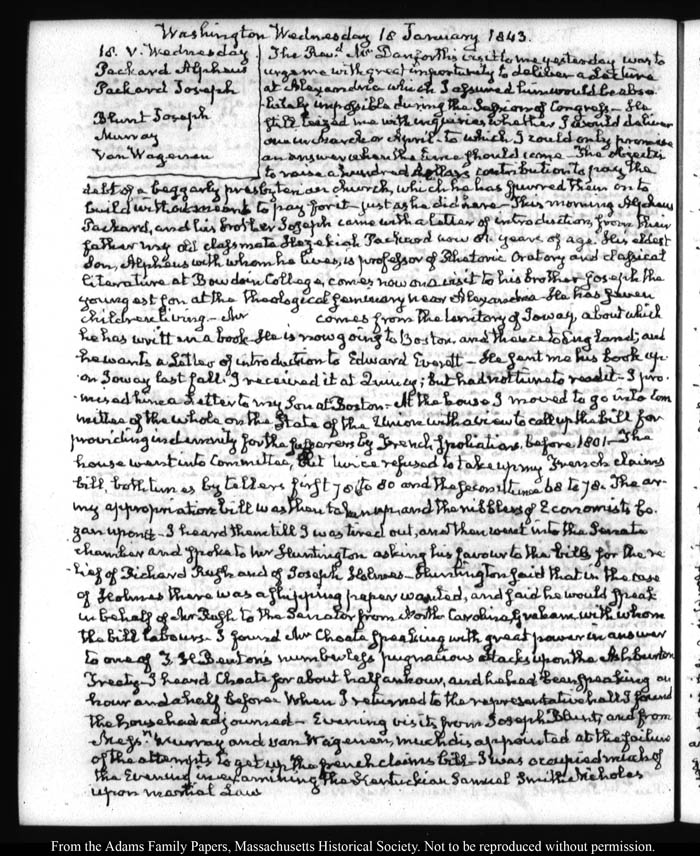 Washington Wednesday 18 January 1843.
18. V. Wednesday
Packard Alpheus
Packard Joseph
Blunt Joseph
Murray
Van Wagenen
The Revd. Mr Danforth's visit to me yesterday was to
urge me with great importunity to deliver a Lecture
at Alexandria which I assured him would be abso-
lutely impossible during the Session of Congress. He
still teized me with inquiries whether I would deliver
one in March or April. to which I could only promise
an answer when the time should come The object is
to raise a hundred dollars contribution to pay the
debt of a beggarly presbyterian church, which he has spurred them on to
build without means to pay for it just as he did here. This morning Alpheus
Packard, and his brother Joseph came with a letter of introduction from their
father my old classmate Hezekiah Packard now years of age. His eldest
Son, Alpheus with whom he lives, is professor of Rhetoric Oratory and classical
literature at Bowdoin College, comes now on a visit to his brother Joseph the
youngest son at the Theological Seminary near Alexandria. He has seven
children living. Mr comes from the territory of Ioway, about which
he has written a book. He is now going to Boston and thence to England; and
he wants a Letter of introduction to Edward Everett. He sent me his book up-
on Ioway last fall. I received it at Quincy; but had not time to read it. I pro-
mised him a Letter to my Son at Boston. At the house I moved to go into Com-
mittee of the whole on the State of the Union with a view to call up the bill for
providing indemnity for the sufferers by French Spoliations before 1801. The
house went into Committee, but twice refused to take up my French claims
bill, both times by tellers first 78 to 80 and the second time 68 to 78. The ar-
my appropriation bill was then taken up, and the nibblers of Economists be-
gan upon it. I heard them till I was tired out, and then went into the Senate
chamber and spoke to Mr Huntington asking his favour to the bills for the re-
lief of Richard Rush and of Joseph Holmes. Huntington said that in the case
of Holmes there was a shipping paper wanted, and said he would speak
in behalf of Mr Rush to the Senator from North Carolina, Graham, with whom
the bill labours. I found Mr Choate speaking with great power in answer
to one of T. H. Benton's numberless pugnacious attacks upon the Ashburton
Treaty. I heard Choate for about half an hour, and he had been speaking an
hour and a half before. When I returned to the representative hall I found
the house had adjourned. Evening visits from Joseph Blunt, and from
Messrs. Murray and Van Wagenen, much disappointed at the failure
of the attempts to get up the french claims bill. I was occupied much of
the Evening in examining the Kentuckian Samuel Smith Nicholas
upon martial Law
From the Adams Family Papers, Massachusetts Historical Society. Not to be reproduced without permission.